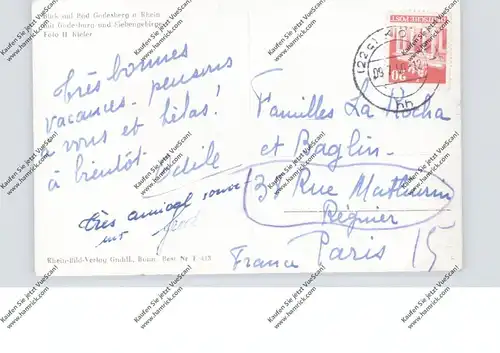 Blick auf Bad Godesberg a. Rhein
mit Godesburg und Siebengebirge
Foto H. Kieler
Très bonnes
vacances - pensons
à vous et hélas!
à bientôt. Odile
très amical souve
Familles La Rocha
et Baglin
3 Rue Mathurin
Régnier
Paris
15
France
Rhein-Bild-Verlag GmbH., Bonn. Best. Nr. I 415
DEUTSCHE POST
20
(22c)
Kaufen Sie jetzt VueScan!
www.hamrick.com